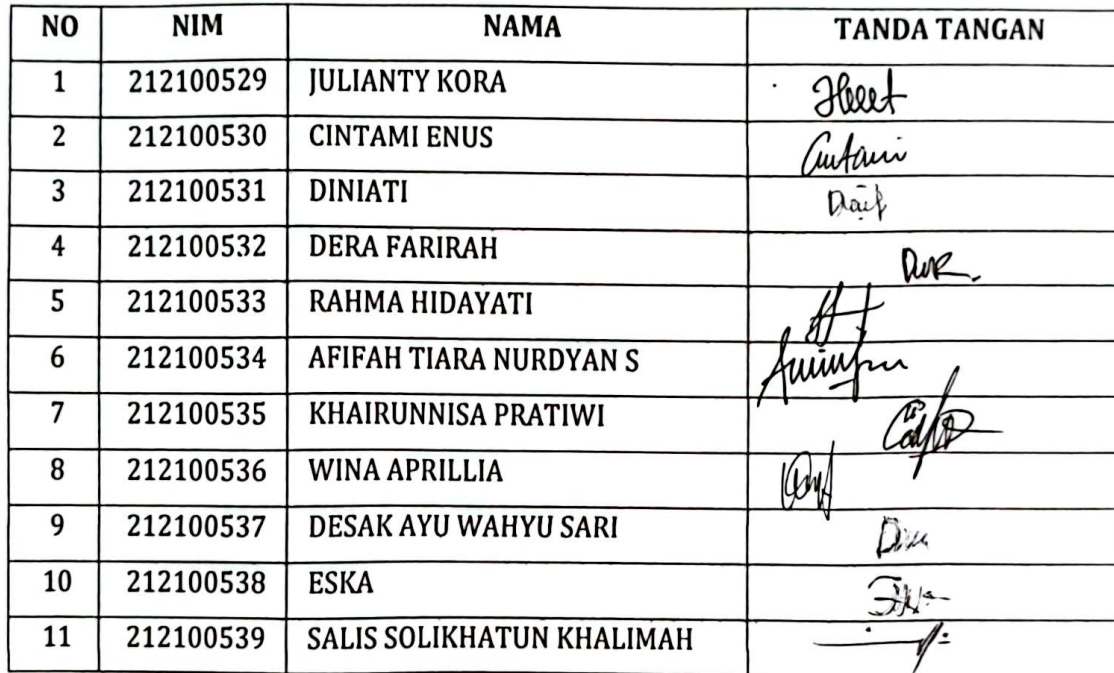 NO NIM NAMA TANDA TANGAN
1 212100529 JULIANTY KORA
2 212100530 CINTAMI ENUS
3 212100531 DINIATI
4 212100532 DERA FARIRAH
5 212100533 RAHMA HIDAYATI
6 212100534 AFIFAH TIARA NURDYAN S
7 212100535 KHAIRUNNISA PRATIWI
8 212100536 WINA APRILLIA
9 212100537 DESAK AYU WAHYU SARI
10 212100538 ESKA
11 212100539 SALIS SOLIKHATUN KHALIMAH